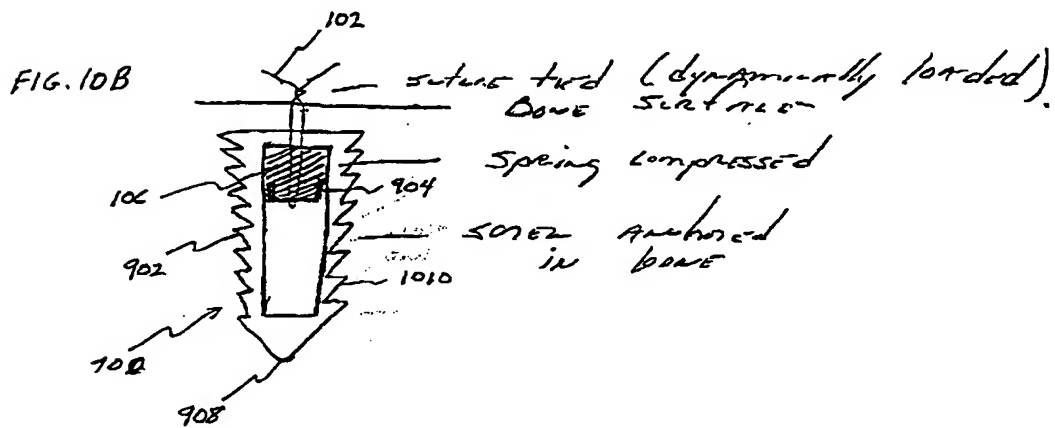 102
FIG. 10B
suture tied (dynamically loaded).
Bone Surface
Spring compressed
106
904
screw anchored
in bone
902
1010
100
908